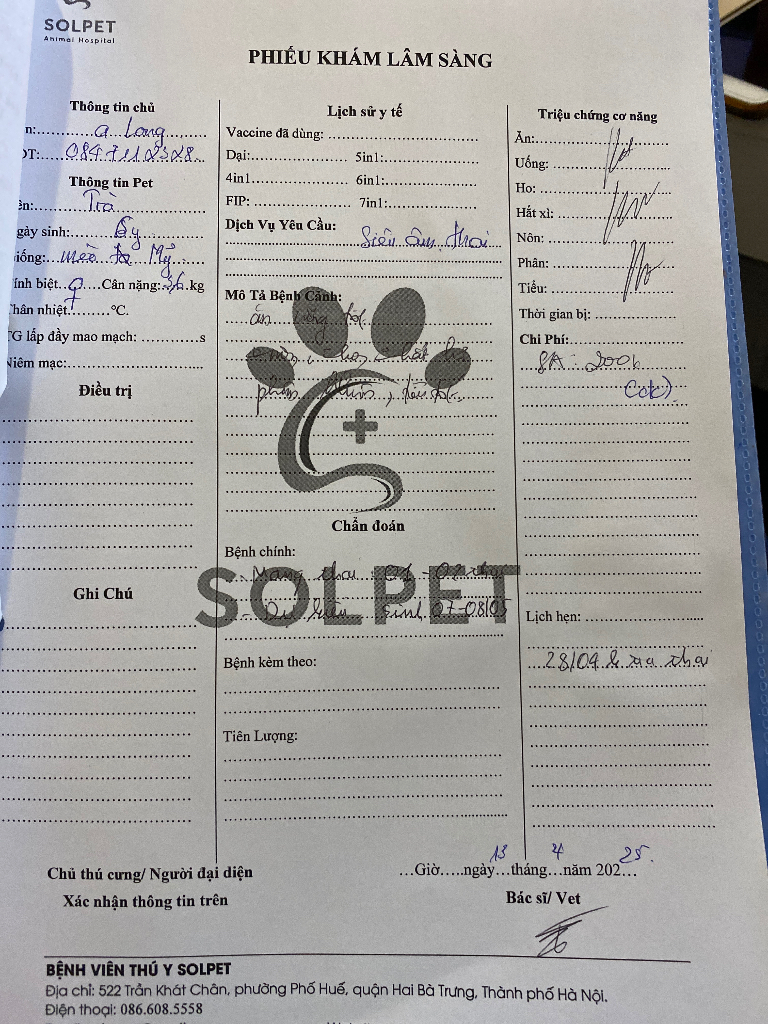 SOLPET
Animal Hospital
PHIẾU KHÁM LÂM SÀNG
Thông tin chủ
n:..........a Long..........
ĐT:.....0847112328...
Thông tin Pet
ên:..........Trà..........
gày sinh:.......6y.......
iống:..mèo ta Mỹ.....
ính biệt..♀....Cân nặng:3,6.kg
hân nhiệt:........°C.
TG lấp đầy mao mạch: ............s
Niêm mạc:..............................
Điều trị
Ghi Chú
Lịch sử y tế
Vaccine đã dùng: ..............................
Dại:........................ 5in1:........................
4in1........................ 6in1:........................
FIP: ........................ 7in1:........................
Dịch Vụ Yêu Cầu: Siêu âm thai
Mô Tả Bệnh Cảnh:
ăn uống tốt
Chẩn đoán
Bệnh chính:
- Mang thai : 01 - 02 thai
- Dự kiến sinh 07-08/05
SOLPET
Bệnh kèm theo:
Tiên Lượng:
Triệu chứng cơ năng
Ăn:..............................
Uống: ..............................
Ho: ..............................
Hắt xì: ..............................
Nôn: ..............................
Phân: ..............................
Tiểu: ..............................
Thời gian bị: ........................
Chi Phí:..............................
SA : 200k
Lịch hẹn: ..............................
28/04
...Giờ.....ngày 13 tháng 4 năm 2025.
Chủ thú cưng/ Người đại diện
Xác nhận thông tin trên
Bác sĩ/ Vet
BỆNH VIÊN THÚ Y SOLPET
Địa chỉ: 522 Trần Khát Chân, phường Phố Huế, quận Hai Bà Trưng, Thành phố Hà Nội.
Điện thoại: 086.608.5558